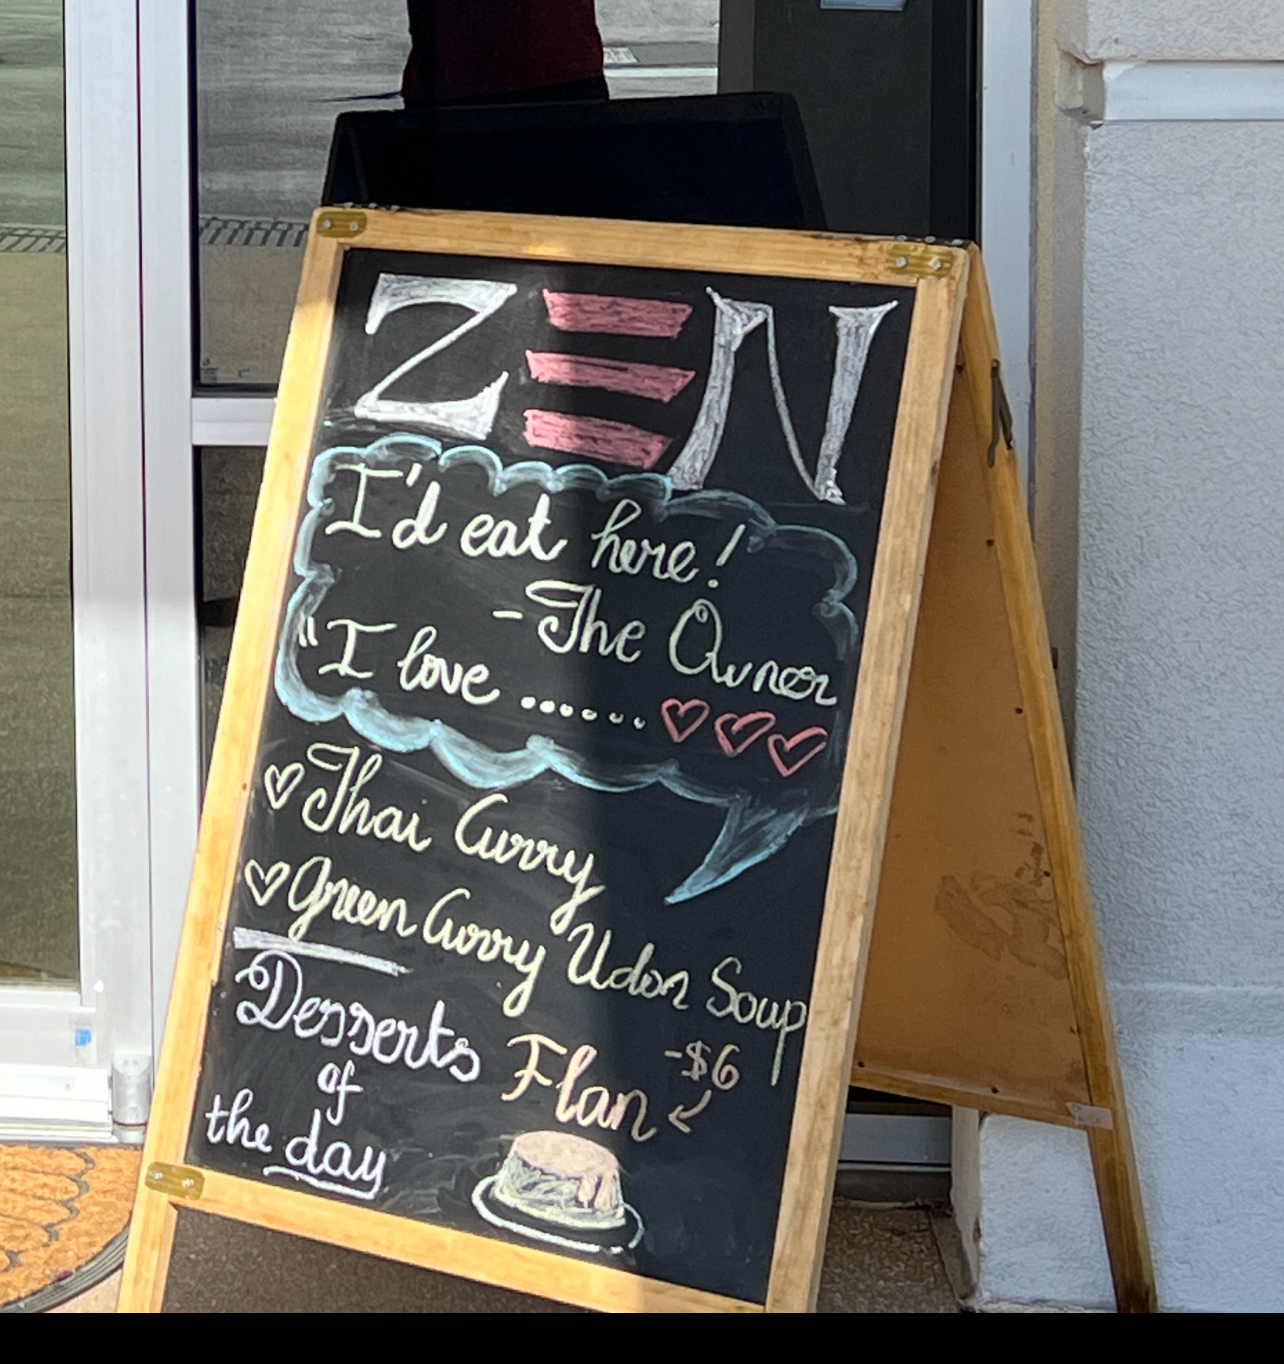 ZEN
I'd eat here!
- The Owner
"I love .......♡♡♡
♡ Thai Curry
♡ Green Curry Udon Soup
Desserts
of
the day
Flan -$6